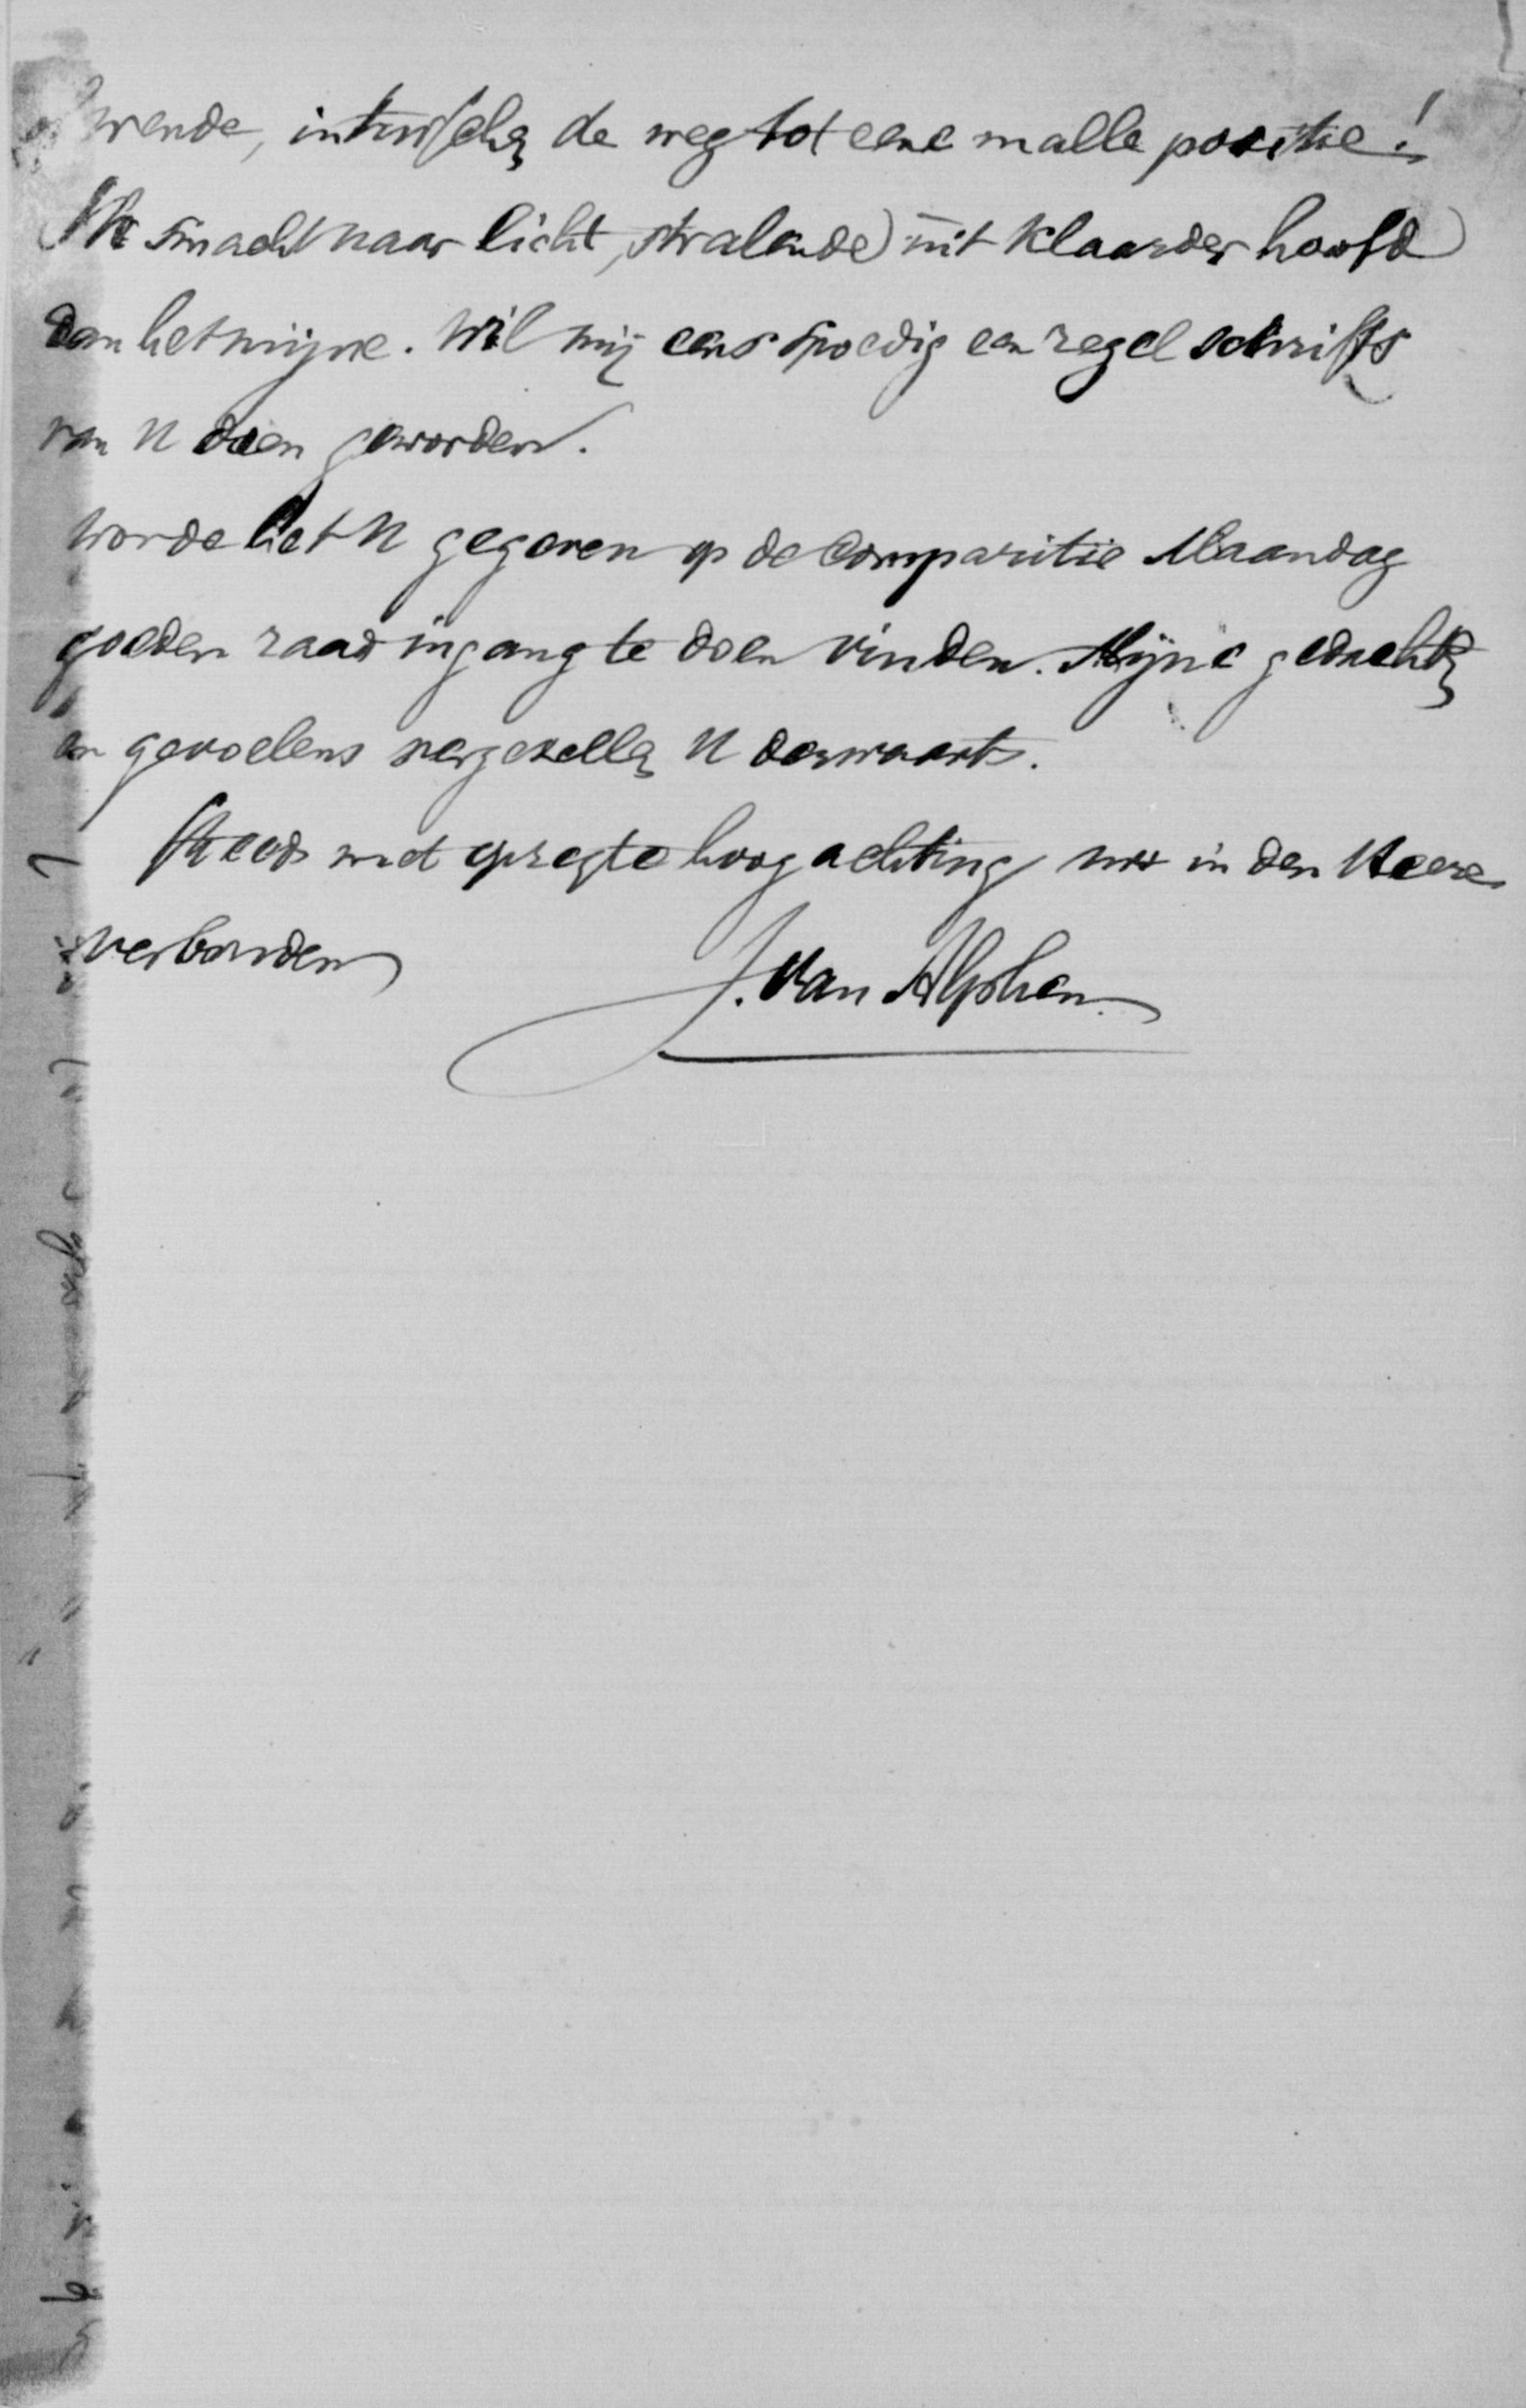 wende, intusschen de weg tot eene malle positie!
Ik smacht naar licht, stralende uit klaarder hoofd
dan het mijne. Wil mij eens spoedig een regel schrifts
van U doen geworden.
Worde het U gegeven op de Comparitie Maandag
goeden raad ingang te doen vinden. Mijne gedachten
en gevoelens vergezellen U derwaarts.
Steeds met opregte hoogachting in den Heere
verbonden
J. van Alphen